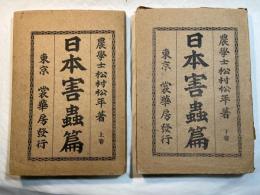 農學士松村松年著
日本害蟲篇
上卷
東京 裳華房發行
農學士松村松年著
日本害蟲篇
下卷
東京 裳華房發行